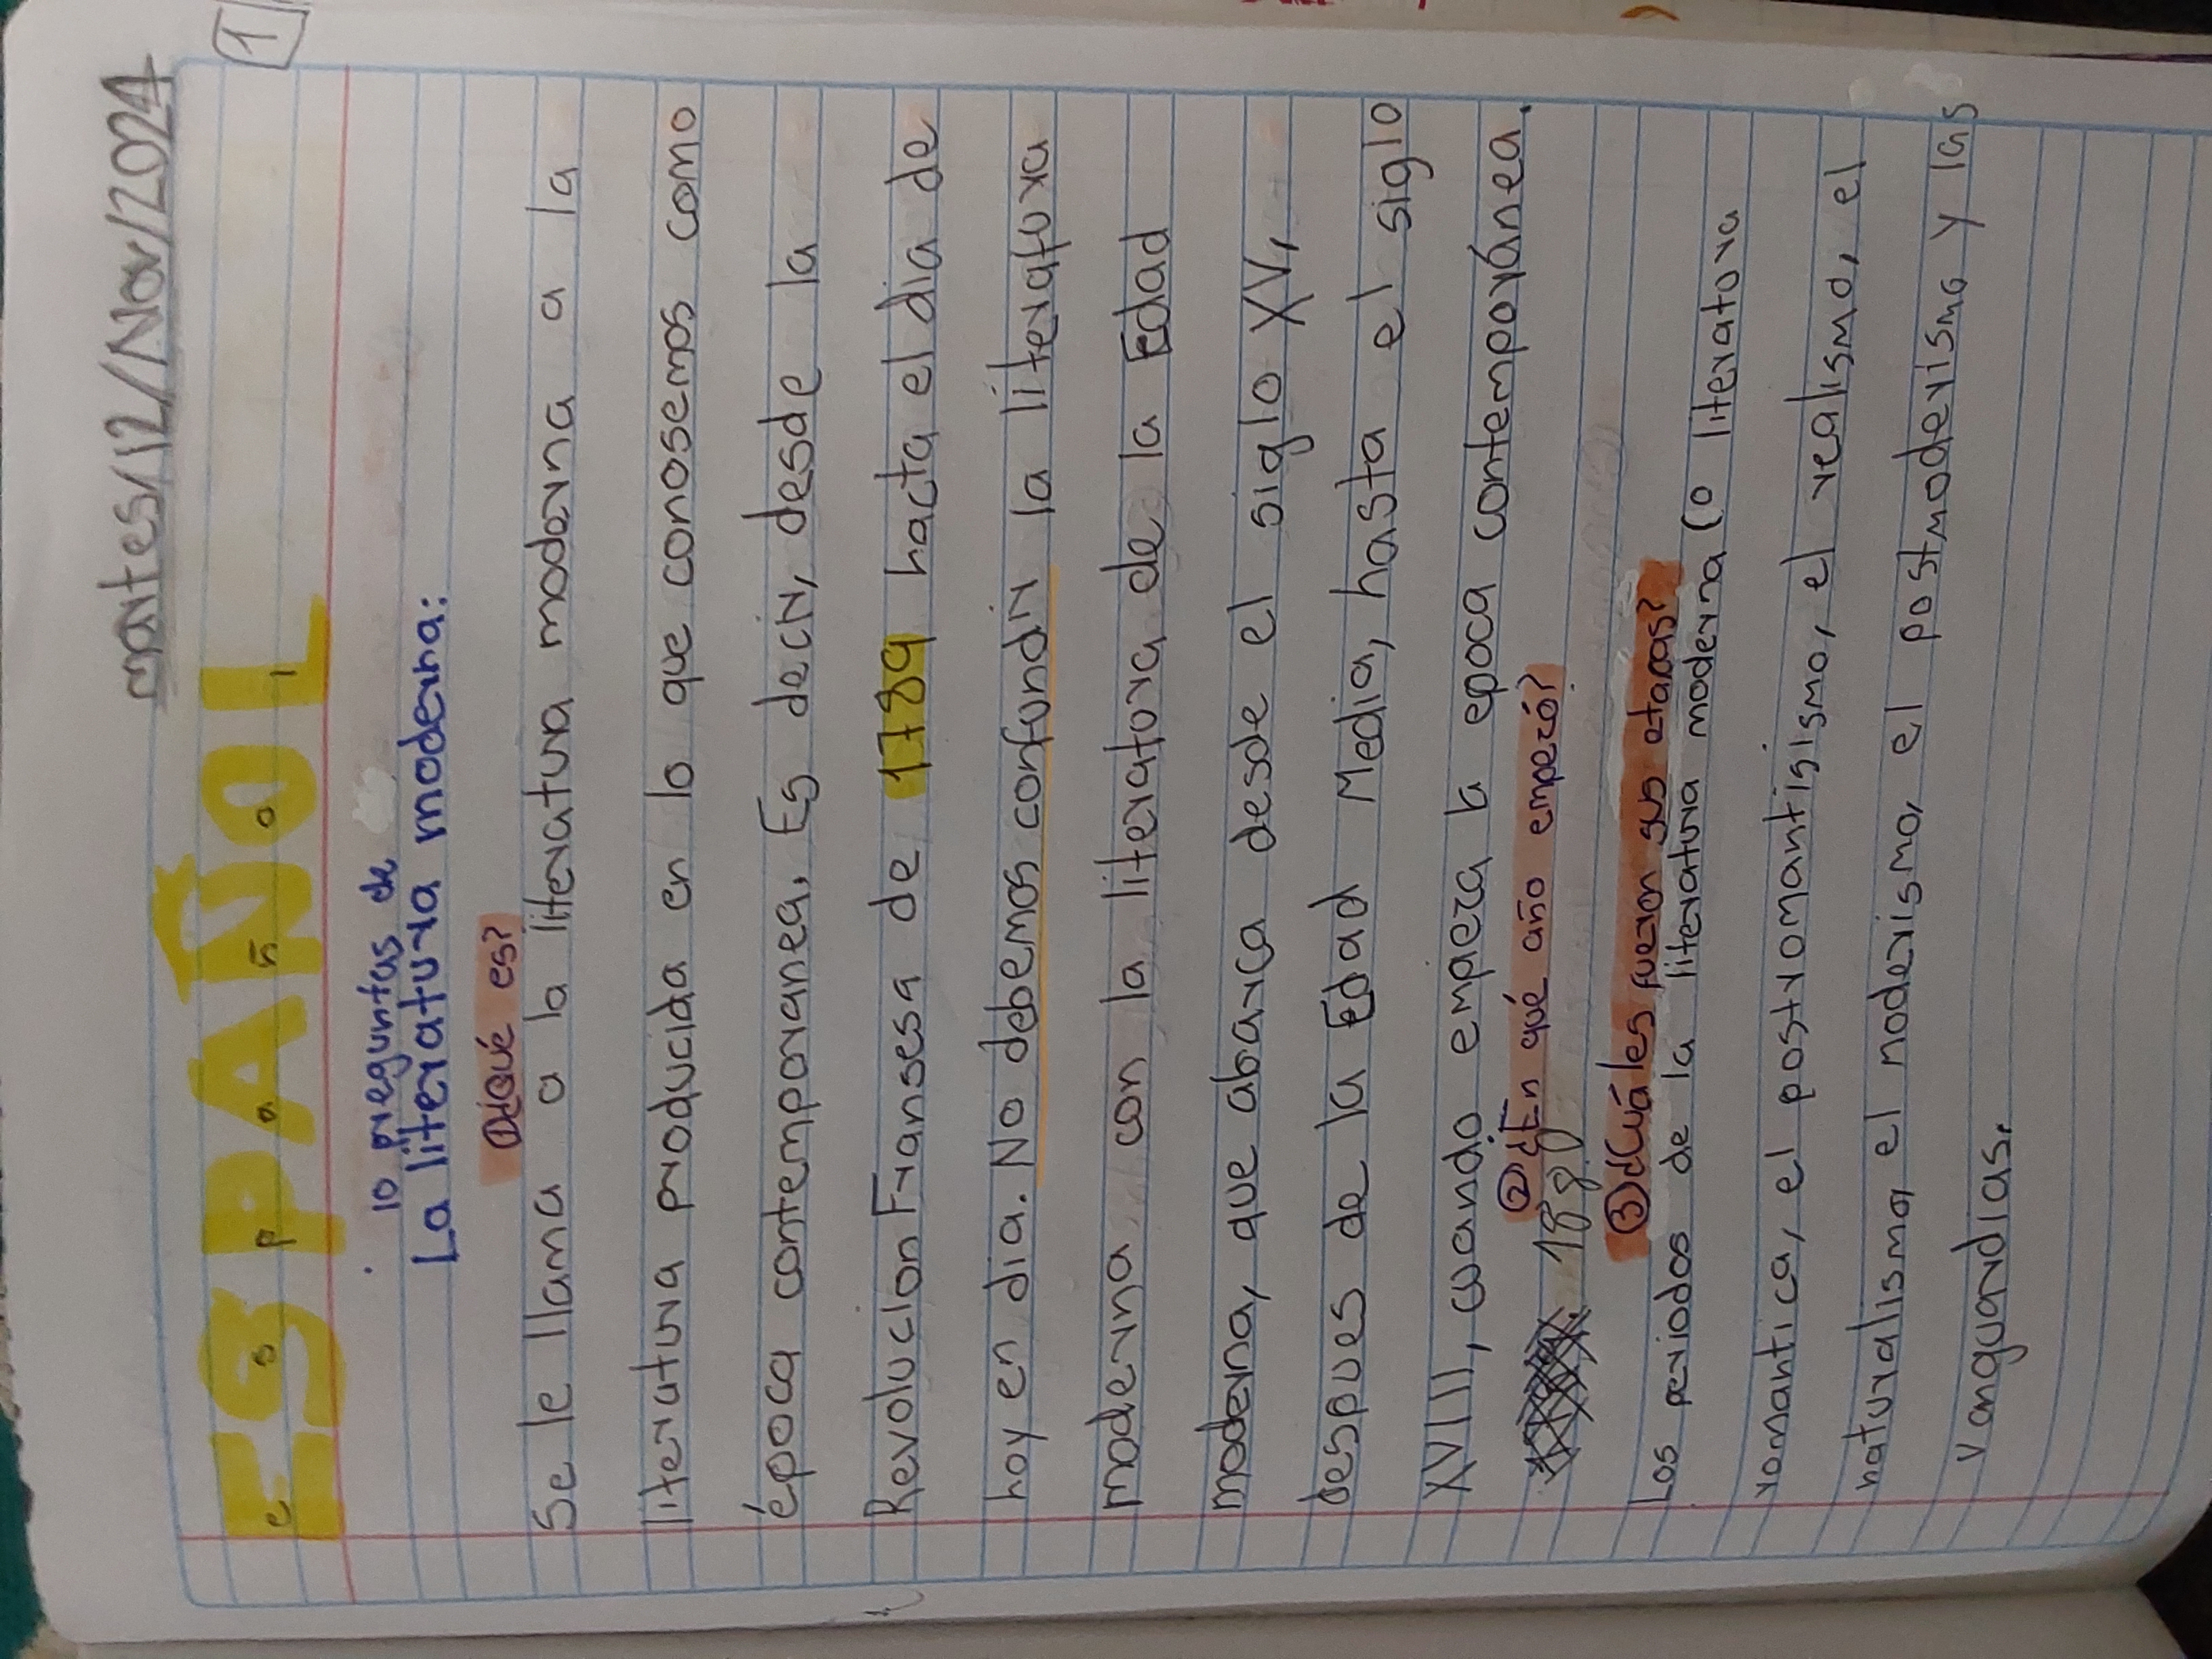 martes/12/Nov/2024
1
ESPAÑOL
e s p a ñ o l
10 preguntas de
La literatura moderna:
①¿Qué es?
Se le llama a la literatura moderna a la
literatura producida en lo que conosemos como
época contemporanea. Es decir, desde la
Revolucion Fransesa de 1789 hacta el dia de
hoy en dia. No debemos confundir la literatura
moderna con la literatura de la Edad
moderna, que abarca desde el siglo XV,
despues de la Edad Media, hasta el siglo
XVIII, cuando empieza la epoca contemporánea.
②¿En qué año empezó?
1880
③¿Cuáles fueron sus etapas?
Los periodos de la literatura moderna (o literatura
romantica, el postromantisismo, el realismo, el
naturalismo, el moderismo, el postmoderismo y las
vanguardias.